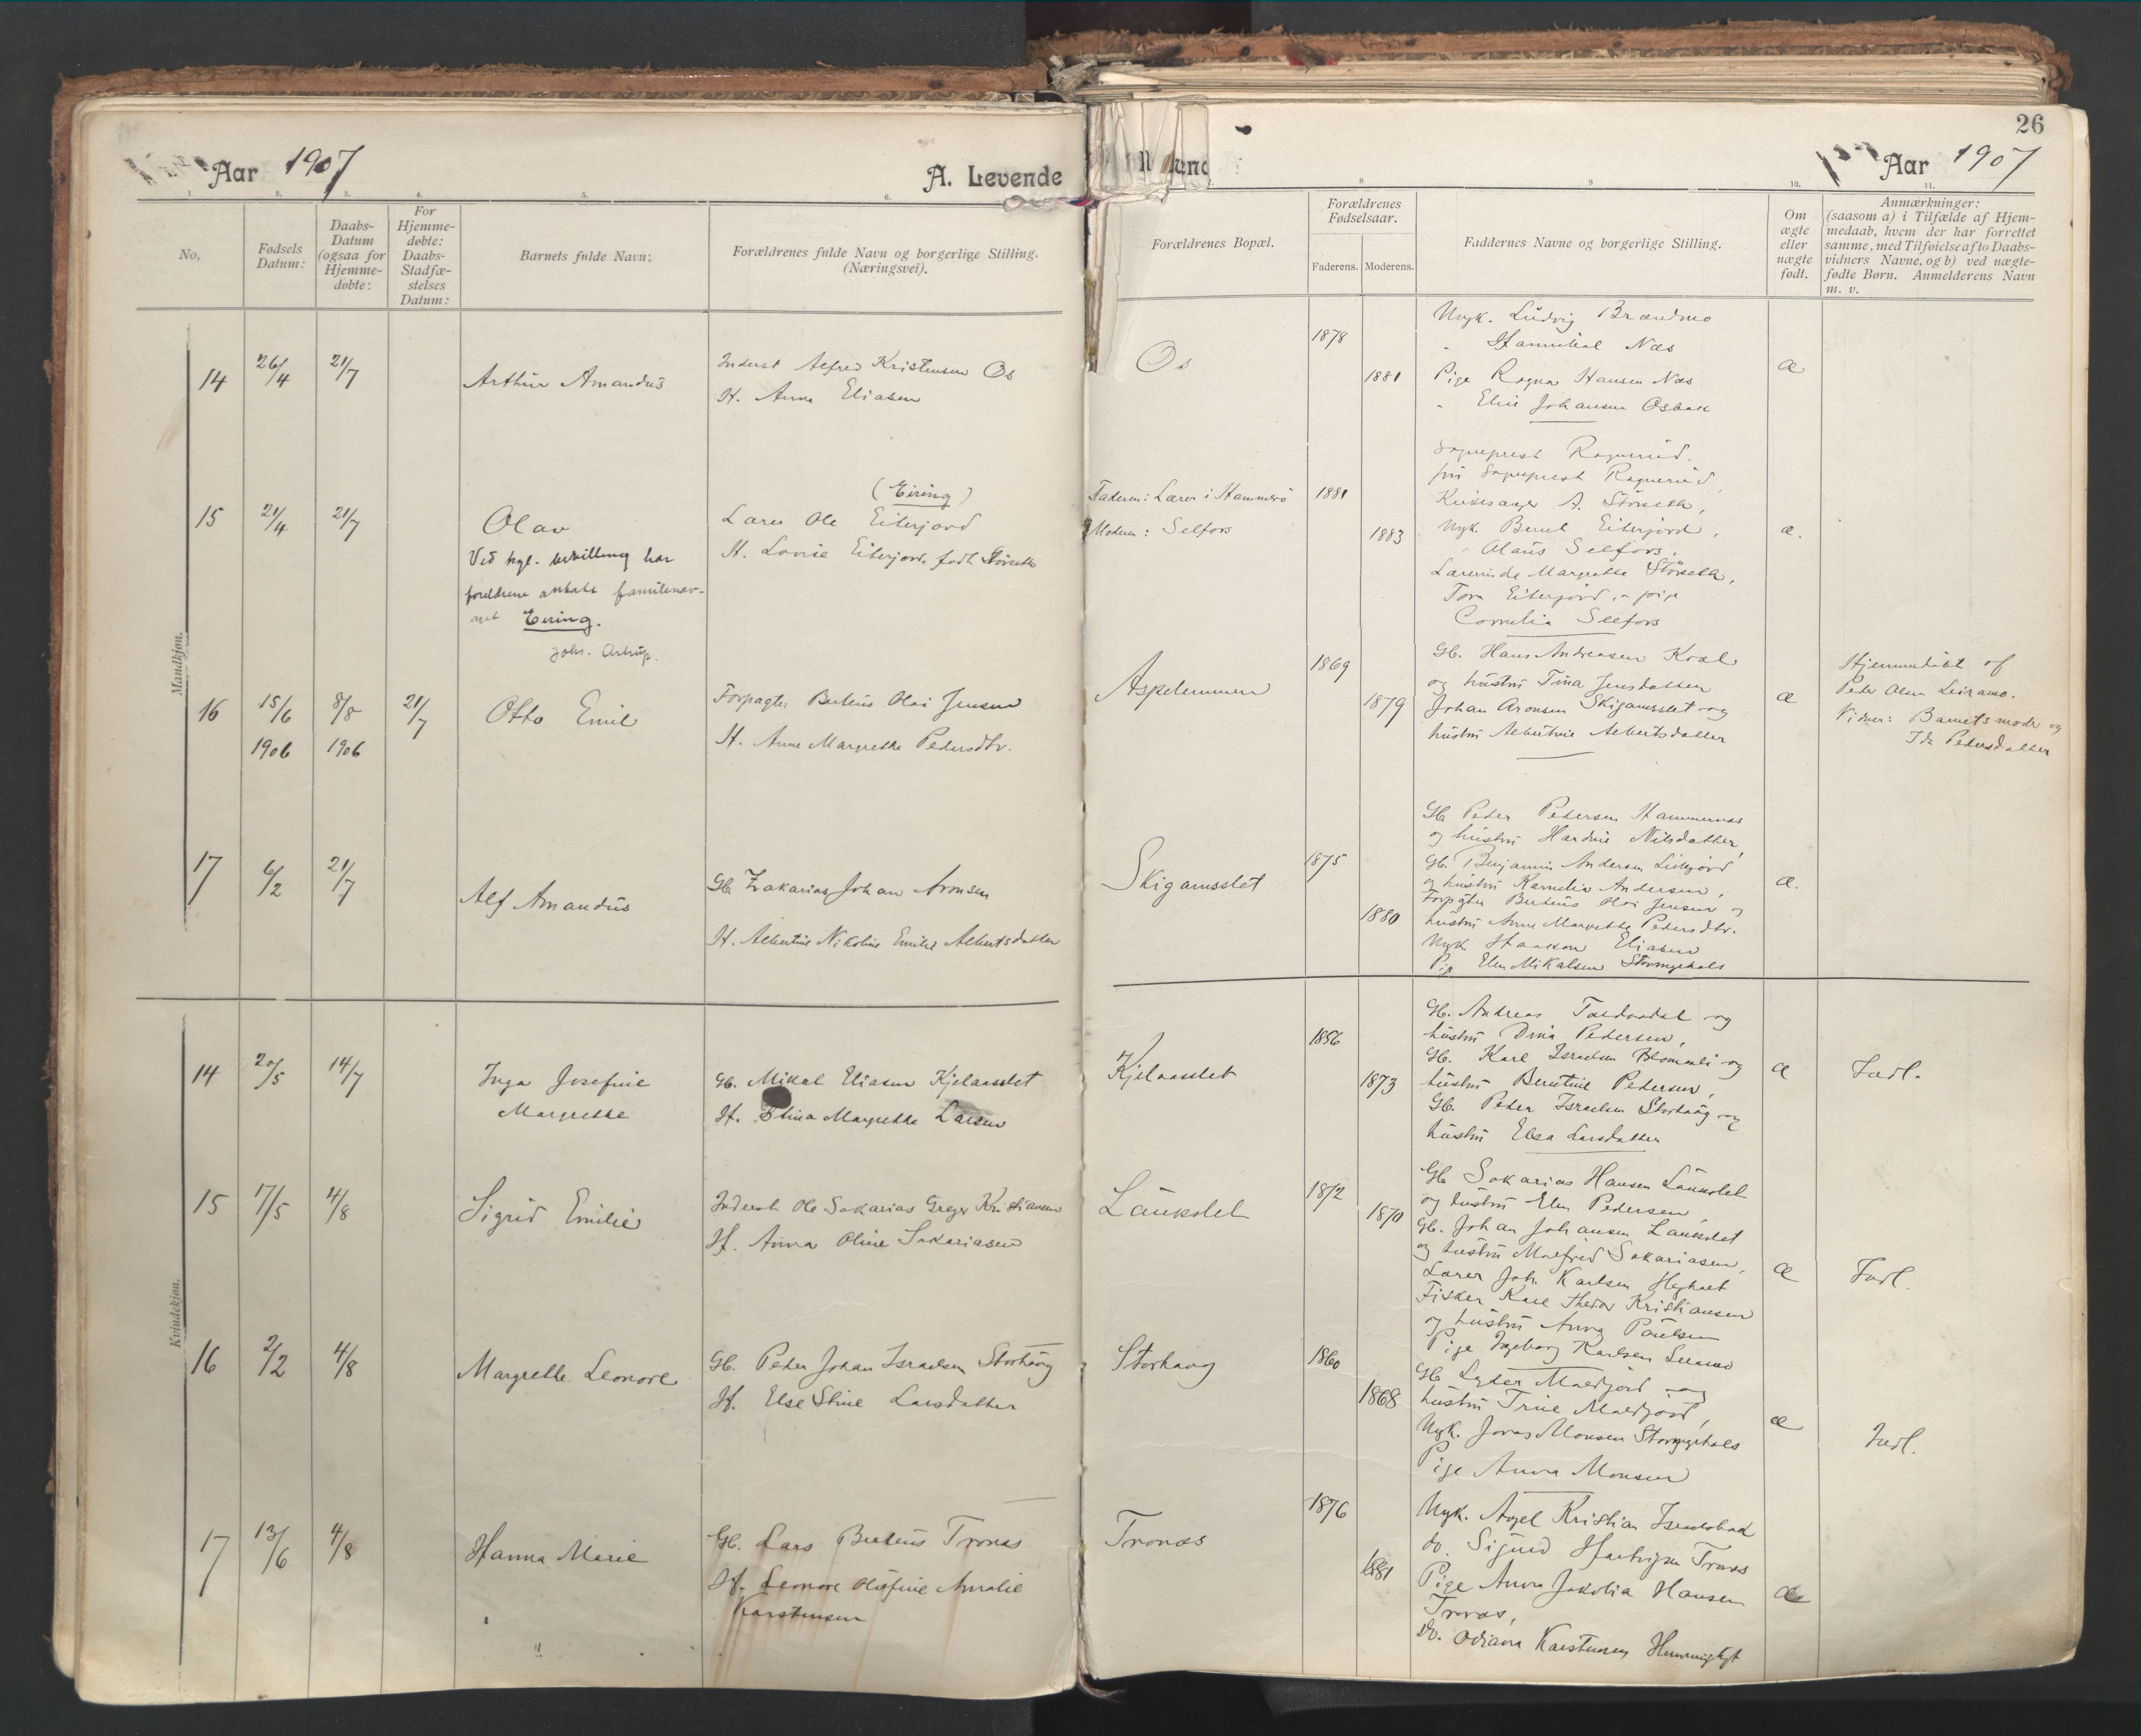 Aar 1907
A. Levende
26
Aar 1907
1. 2. 3. 4. 5. 6.
No.
Fødsels Datum:
Daabs-Datum (ogsaa for Hjemmedøbte:
For Hjemmedøbte: Daabs-Stadfæstelses Datum:
Barnets fulde Navn:
Forældrenes fulde Navn og borgerlige Stilling.
(Næringsvei).
8 9 10. 11.
Forældrenes Bopæl.
Forældrenes Fødselsaar.
Faderens. Moderens.
Faddernes Navne og borgerlige Stilling.
Om ægte eller uægte født.
Anmærkninger:
(saasom a) i Tilfælde af Hjem-
medaab, hvem der har forrettet
samme, med Tilføielse af to Daabs-
vidners Navne, og b) ved uægte-
fødte Børn. Anmelderens Navn
m. v.
Mandkjøn.
14 26/4 21/7 Arthur Amandus
Inderst Alfred Kristensen Os
H. Anna Eliasen
Os 1878 1881
Ungk. Ludvig Brændmo
" Hannibal Næs
Pige Ragna Hansen Næs
" Eline Johansen Osbak
æ
15 21/4 21/7 Olav
Ved kgl. bevilling har
foreldrene antatt familienav-
net Eiring.
Johs. Astrup.
(Eiring)
Lærer Ole Eiterjord
H. Lovise Eiterjord, født Störseth
Faderen: Lærer i Hammerö 1881
Moderen: Selfors 1883
Sogneprest Rognerud,
fru Sogneprest Rognerud,
Kirkesanger A. Störseth,
Ungk. Bernt Eiterjord,
" Alaus Selfors,
Lærerinde Margrethe Störseth,
Tora Eiterjord, pige
Cornelia Selfors
æ.
16 15/6 1906 8/8 1906 21/7 Otto Emil
Forpagter Berteus Olai Jensen
H. Anne Margrethe Pedersdtr.
Asplemmen 1869 1879
Gb. Hans Andreasen Kval
og hustru Tina Jensdatter
Johan Aronsen Skigamsslet og
hustru Albertine Albertsdatter
æ
Hjemmedöbt af
Peder Olsen Leiramo.
Vidner: Barnets moder og
Ida Pedersdatter
17 6/2 21/7 Alf Amandus
Gb. Zakarias Johan Aronsen
H. Albertine Nikoline Emilie Albertsdatter
Skigamsslet 1875 1880
Gb. Peder Pedersen Hammernæs
og hustru Hardine Nilsdatter,
Gb. Benjamin Andersen
og hustru Kornelia Andersen,
Forpagter Berteus Olai Jensen og
hustru Anne Margrethe Pedersdtr.
Ungk. Haakon Eliasen
Pige Elen Mikalsen Stormyrhals
æ.
Kvindekjøn.
14 20/5 14/7 Inga Josefine
Margrethe
Gb. Mikal Eliasen Kjelaasslet
H. Stina Margrethe Larsen
Kjelaasslet 1856 1873
Gb. Andreas og
hustru Dina Pedersen,
Gb. Karl Israelsen Blomauli og
hustru Berntine Pedersen,
Gb. Peder Israelsen Storhaug og
hustru Elsa Larsdatter
æ Indl.
15 17/5 4/8 Sigrid Emilie
Inderst Ole Sakarias Greger Kristiansen
H. Anna Oline Sakariasen
Laukslet 1872 1870
Gb. Sakarias Hansen Laukslet
og hustru Elen Pedersen
Gb. Johan Johansen Laukslet
og hustru Malfrid Sakariasen,
Lærer Joh. Karlsen
Fisker Karl Theodor Kristiansen
og hustru Anna Paulsen
Pige Ingeborg Karlsen
æ Indl.
16 2/2 4/8 Margrethe Leonore
Gb. Peder Johan Israelsen Storhaug
H. Else Stine Larsdatter
Storhaug 1860 1868
Gb. Lyder Maltfjord og
hustru Trine Maltfjord,
Ungk. Jonas Monsen Stormyrhals
Pige Anna Monsen
æ Indl.
17 13/6 4/8 Hanna Marie
Gb. Lars Berteus Tronæs
H. Leonore Olufine Amalie
Karstensen
Tronæs 1876 1881
Ungk. Axel Kristian
do. Sigurd Hartvigsen Tronæs
Pige Anna Jakobia Hansen
Tronæs,
do. Odiana Karstensen
æ